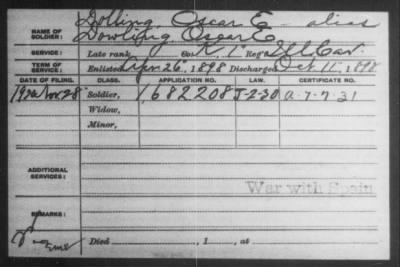 Dolling, Oscar E - alias
NAME OF SOLDIER: Dowling, Oscar E.
SERVICE: Late rank, Co. K, 1" Reg't Ill Cav.
TERM OF SERVICE: Enlisted Apr. 26", 1898 Discharged Oct. 11", 1898
DATE OF FILING. CLASS. APPLICATION NO. LAW. CERTIFICATE NO.
Nov 28" Soldier, 1,682208 J-2-30 a-7-7-31
Widow,
Minor,
ADDITIONAL SERVICES:
War with Spain
REMARKS:
Died , 1 , at